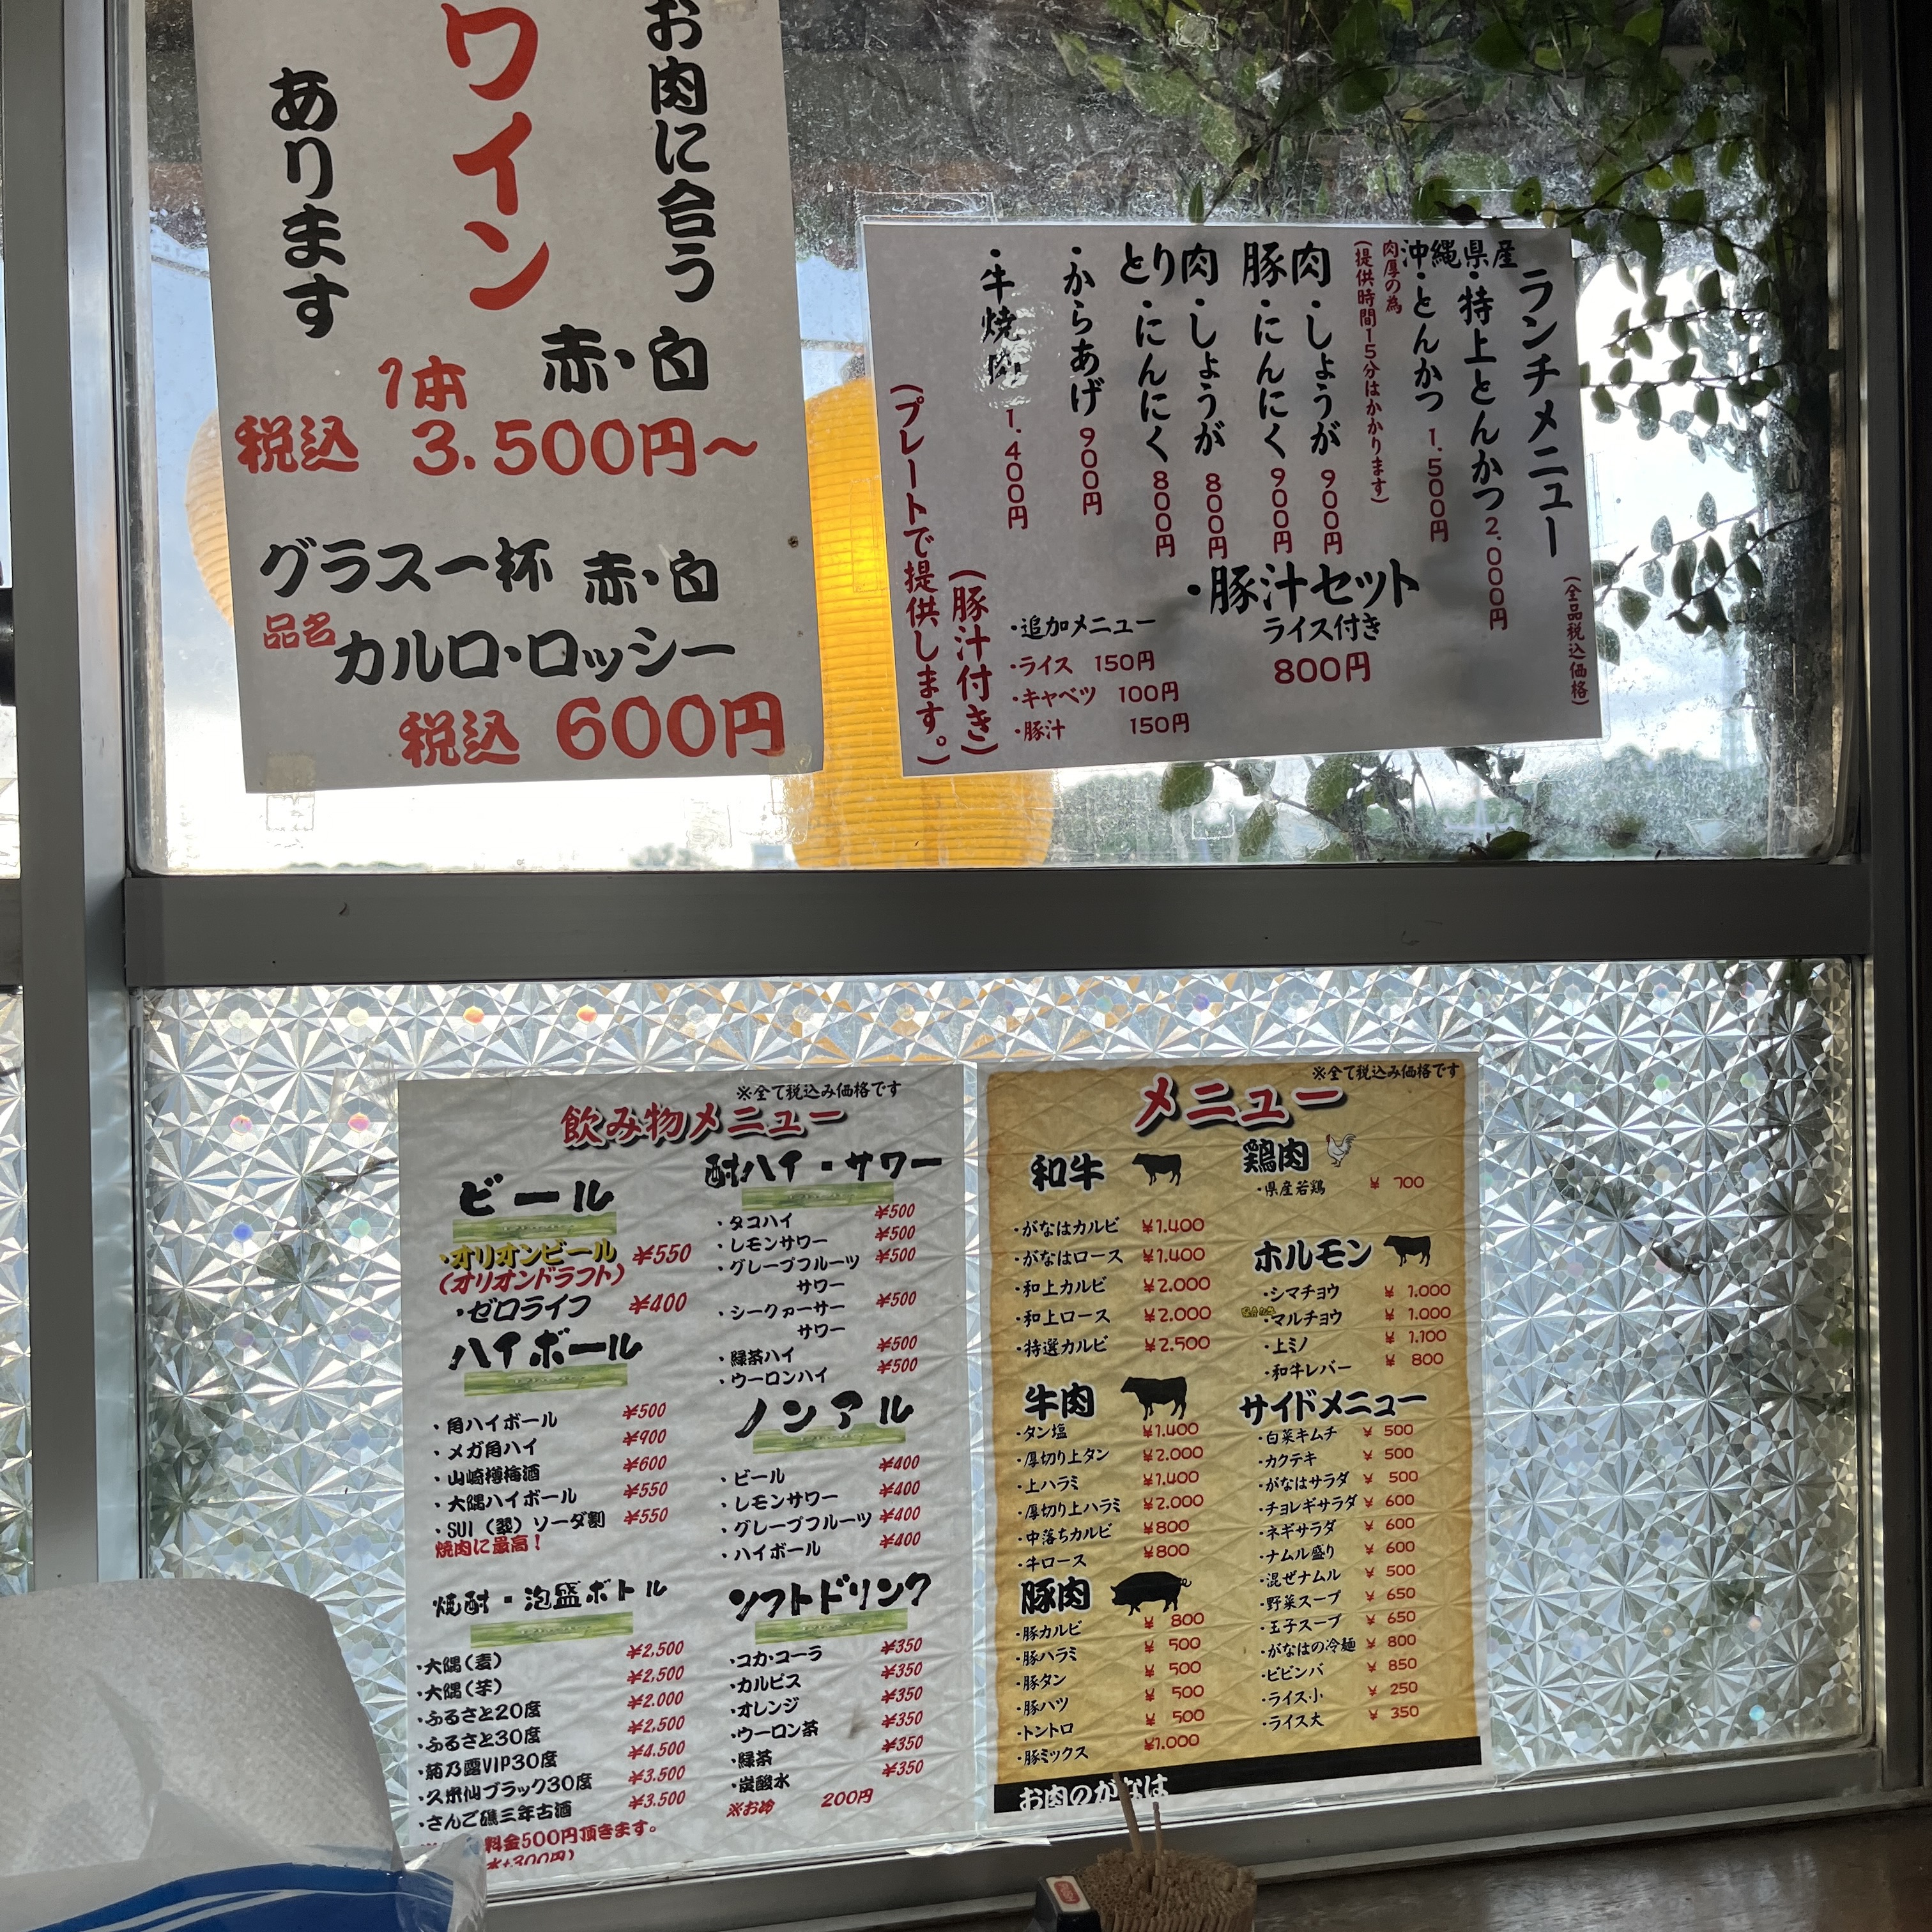 お肉に合う
ワイン
あります
赤・白
1本
税込 3.500円～
グラス一杯 赤・白
品名 カルロ・ロッシー
税込 600円
ランチメニュー
(全品税込価格)
沖縄県産
・特上とんかつ 2.000円
・とんかつ 1.500円
肉厚の為
(提供時間15分はかかります)
豚肉
・しょうが 900円
・にんにく 900円
とり肉
・しょうが 800円
・にんにく 800円
・からあげ 900円
・牛焼肉 1.400円
・豚汁セット
ライス付き
800円
・追加メニュー
・ライス 150円
・キャベツ 100円
・豚汁 150円
(豚汁付き)
(プレートで提供します。)
※全て税込み価格です
飲み物メニュー
ビール
・オリオンビール ¥550
(オリオンドラフト)
・ゼロライフ ¥400
ハイボール
・角ハイボール ¥500
・メガ角ハイ ¥900
・山崎樽梅酒 ¥600
・大隅ハイボール ¥550
・SUI（翠）ソーダ割 ¥550
焼肉に最高！
焼酎・泡盛ボトル
・大隅（麦） ¥2,500
・大隅（芋） ¥2,500
・ふるさと20度 ¥2.000
・ふるさと30度 ¥2,500
・菊乃露VIP30度 ¥4.500
・久米仙ブラック30度 ¥3.500
・さんご礁三年古酒 ¥3.500
料金500円頂きます。
水+300円)
酎ハイ・サワー
・タコハイ ¥500
・レモンサワー ¥500
・グレープフルーツ ¥500
サワー
・シークァーサー ¥500
サワー
・緑茶ハイ ¥500
・ウーロンハイ ¥500
ノンアル
・ビール ¥400
・レモンサワー ¥400
・グレープフルーツ ¥400
・ハイボール ¥400
ソフトドリンク
・コカ・コーラ ¥350
・カルピス ¥350
・オレンジ ¥350
・ウーロン茶 ¥350
・緑茶 ¥350
・炭酸水 ¥350
※お冷 200円
※全て税込み価格です
メニュー
和牛
・がなはカルビ ¥1.400
・がなはロース ¥1.400
・和上カルビ ¥2.000
・和上ロース ¥2.000
・特選カルビ ¥2.500
牛肉
・タン塩 ¥1.400
・厚切り上タン ¥2.000
・上ハラミ ¥1.400
・厚切り上ハラミ ¥2.000
・中落ちカルビ ¥800
・牛ロース ¥800
豚肉
・豚カルビ ¥800
・豚ハラミ ¥500
・豚タン ¥500
・豚ハツ ¥500
・トントロ ¥500
・豚ミックス ¥1.000
鶏肉
・県産若鶏 ¥700
ホルモン
・シマチョウ ¥1.000
・マルチョウ ¥1.000
・上ミノ ¥1.100
・和牛レバー ¥800
サイドメニュー
・白菜キムチ ¥500
・カクテキ ¥500
・がなはサラダ ¥500
・チョレギサラダ ¥600
・ネギサラダ ¥600
・ナムル盛り ¥600
・混ぜナムル ¥500
・野菜スープ ¥650
・玉子スープ ¥650
・がなはの冷麺 ¥800
・ビビンバ ¥850
・ライス小 ¥250
・ライス大 ¥350
お肉のがなは